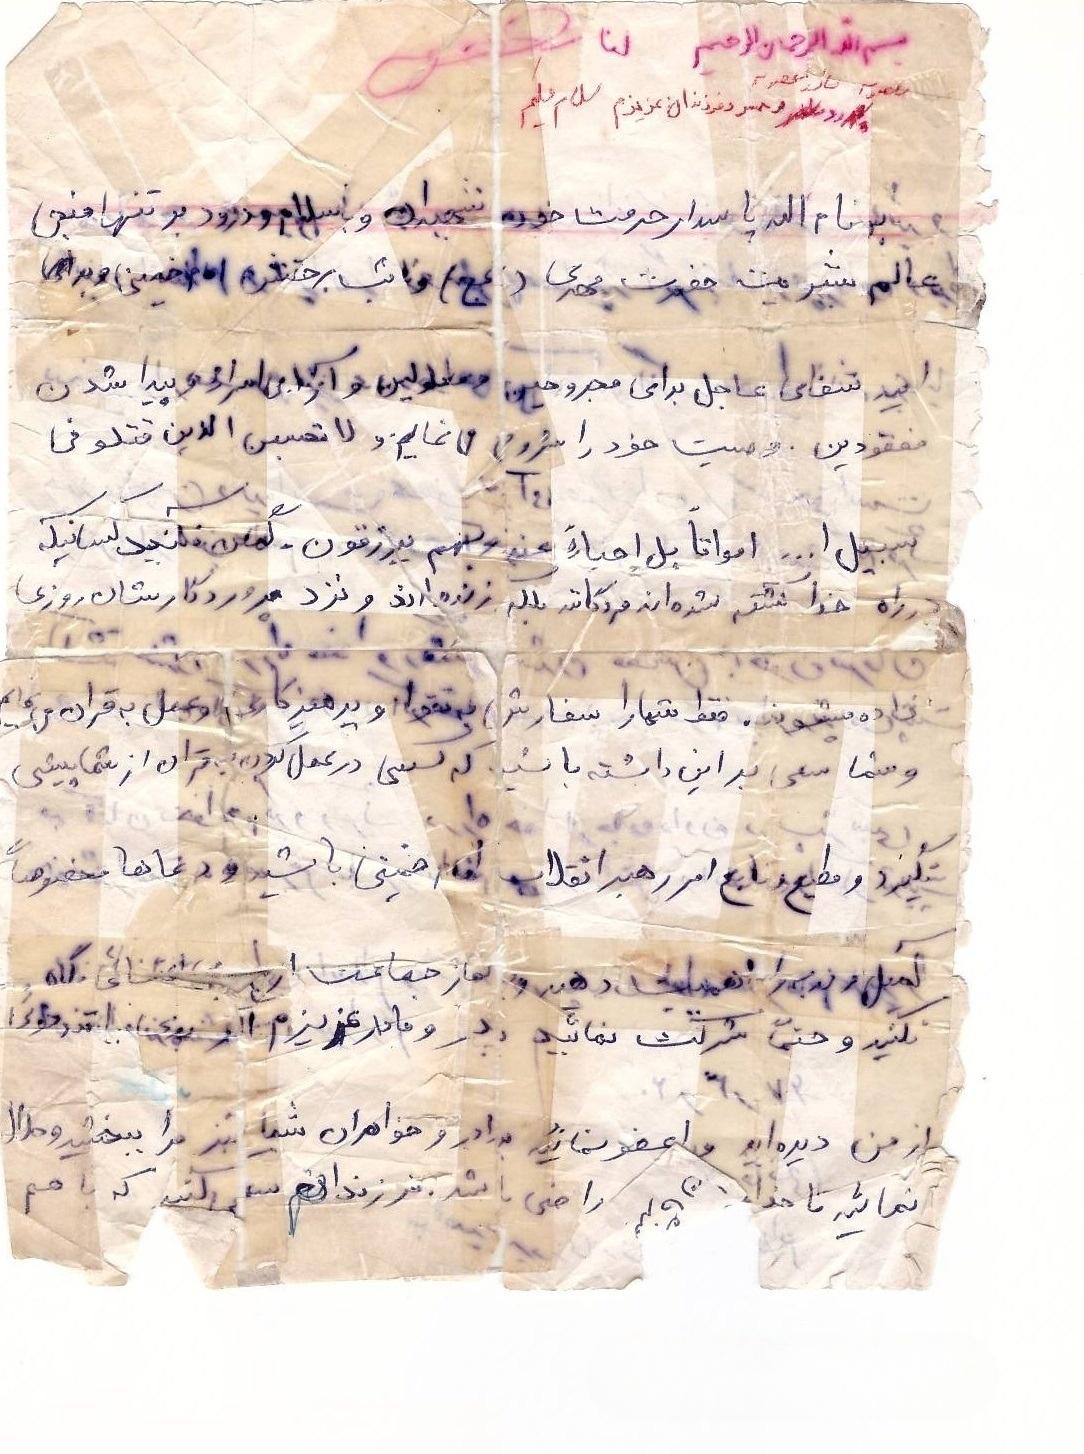 بسم الله الرحمن الرحیم
پدر و مادر و همسر و فرزندان عزیزم سلام علیکم
بنام الله پاسدار حرمت خون شهیدان و با سلام و درود بر تنها منجی
عالم بشریت حضرت مهدی (عج) و نائب برحقش امام خمینی و برای
شفای عاجل برای مجروحین و معلولین و آزادی اسراء و پیدا شدن
مفقودین . وصیت خود را شروع می نمایم و لا تحسبن الذین قتلو فی
سبیل ا... امواتاً بل احیاءً عند ربهم یرزقون . گمان نکنید کسانیکه
در راه خدا کشته شده اند مرده اند بلکه زنده اند و نزد پروردگارشان روزی
داده میشوند . فقط شما را سفارش به تقوا و پرهیزکاری و عمل به قران می نمایم
و شما سعی بر این داشته باشید که کسی در عمل کردن به قران از شما پیشی
نگیرد و مطیع و تابع امر رهبر انقلاب امام خمینی باشید و دعاها مخصوصاً
کمیل و ندبه را اهمیت دهید و نماز جماعت را نگاه
نکنید و حتماً شرکت نمائید پدر و مادر عزیزم اگر
از من دیده اید مرا عفو نمائید برادر و خواهران شما نیز مرا ببخشید و حلال
نمائید تا خدا راضی باشد . فرزندانم سعی کنید که با هم